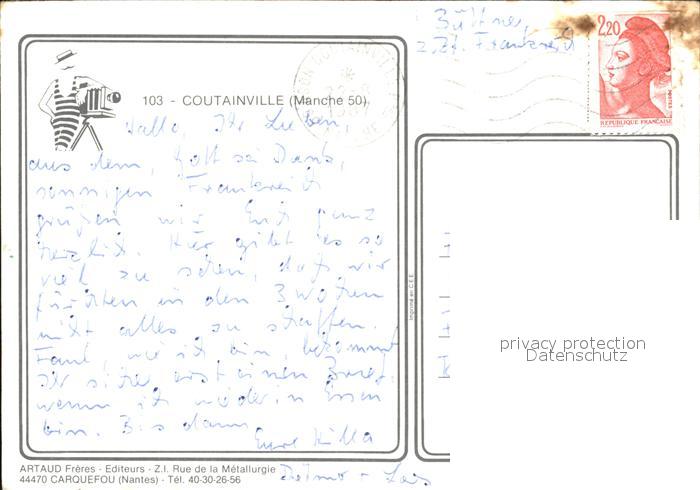 Büttner,
z.Zt. Frankreich
2,20
REPUBLIQUE FRANÇAISE
103 - COUTAINVILLE (Manche 50)
Hallo, Ihr Lieben,
aus dem, Gott sei Dank,
sonnigen Frankreich
grüßen wir Euch ganz
herzlich. Hier gibt es so
viel zu sehen, daß wir
fürchten in den 3 Wochen
nicht alles zu schaffen.
Faul, wie ich bin, bekommt
Ihr sicher erst einen Brief,
wenn ich wieder in Essen
bin. Bis dann
Eure Milla
Imprimé en C.E.E.
privacy protection
Datenschutz
ARTAUD Frères - Editeurs - Z.I. Rue de la Métallurgie
44470 CARQUEFOU (Nantes) - Tél. 40-30-26-56